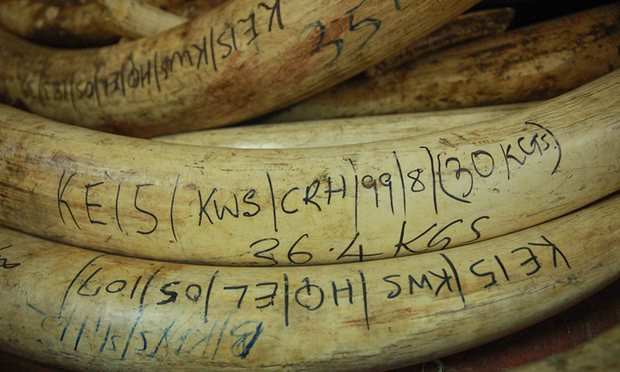 KE15/KWS/HQ/EL/05/
KE/5/KWS/CRH/99/8/(30KGS)
36.4 KGS
KE15/KWS/HQ/EL/05/107/